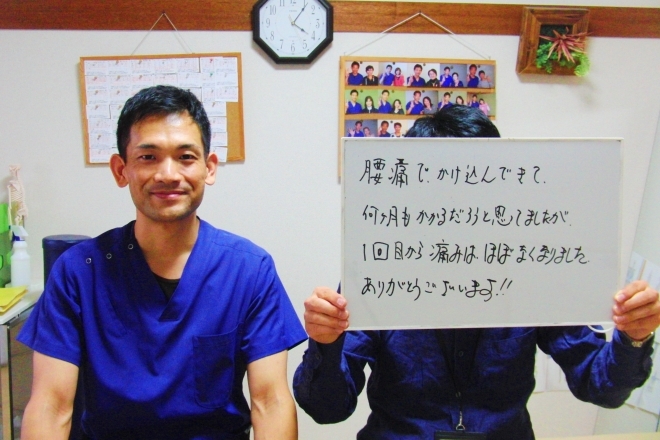 腰痛で、かけ込んできて、
何ヶ月もかかるだろうと思てましたが、
1回目から痛みは、ほぼなくなりました。
ありがとうございます!!